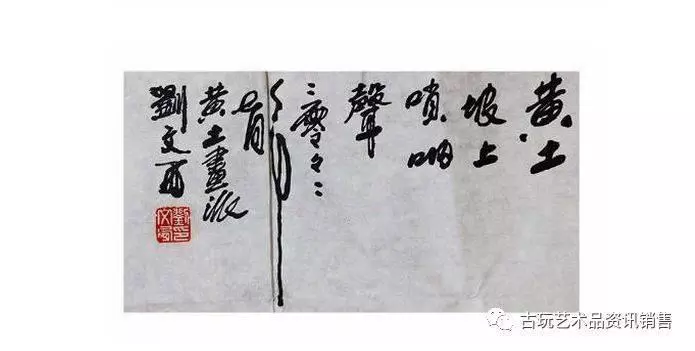 黄土
坡上
嗩呐
聲
二零々二
年
七月
黄土畫派
劉文西
劉印文西
古玩艺术品资讯销售